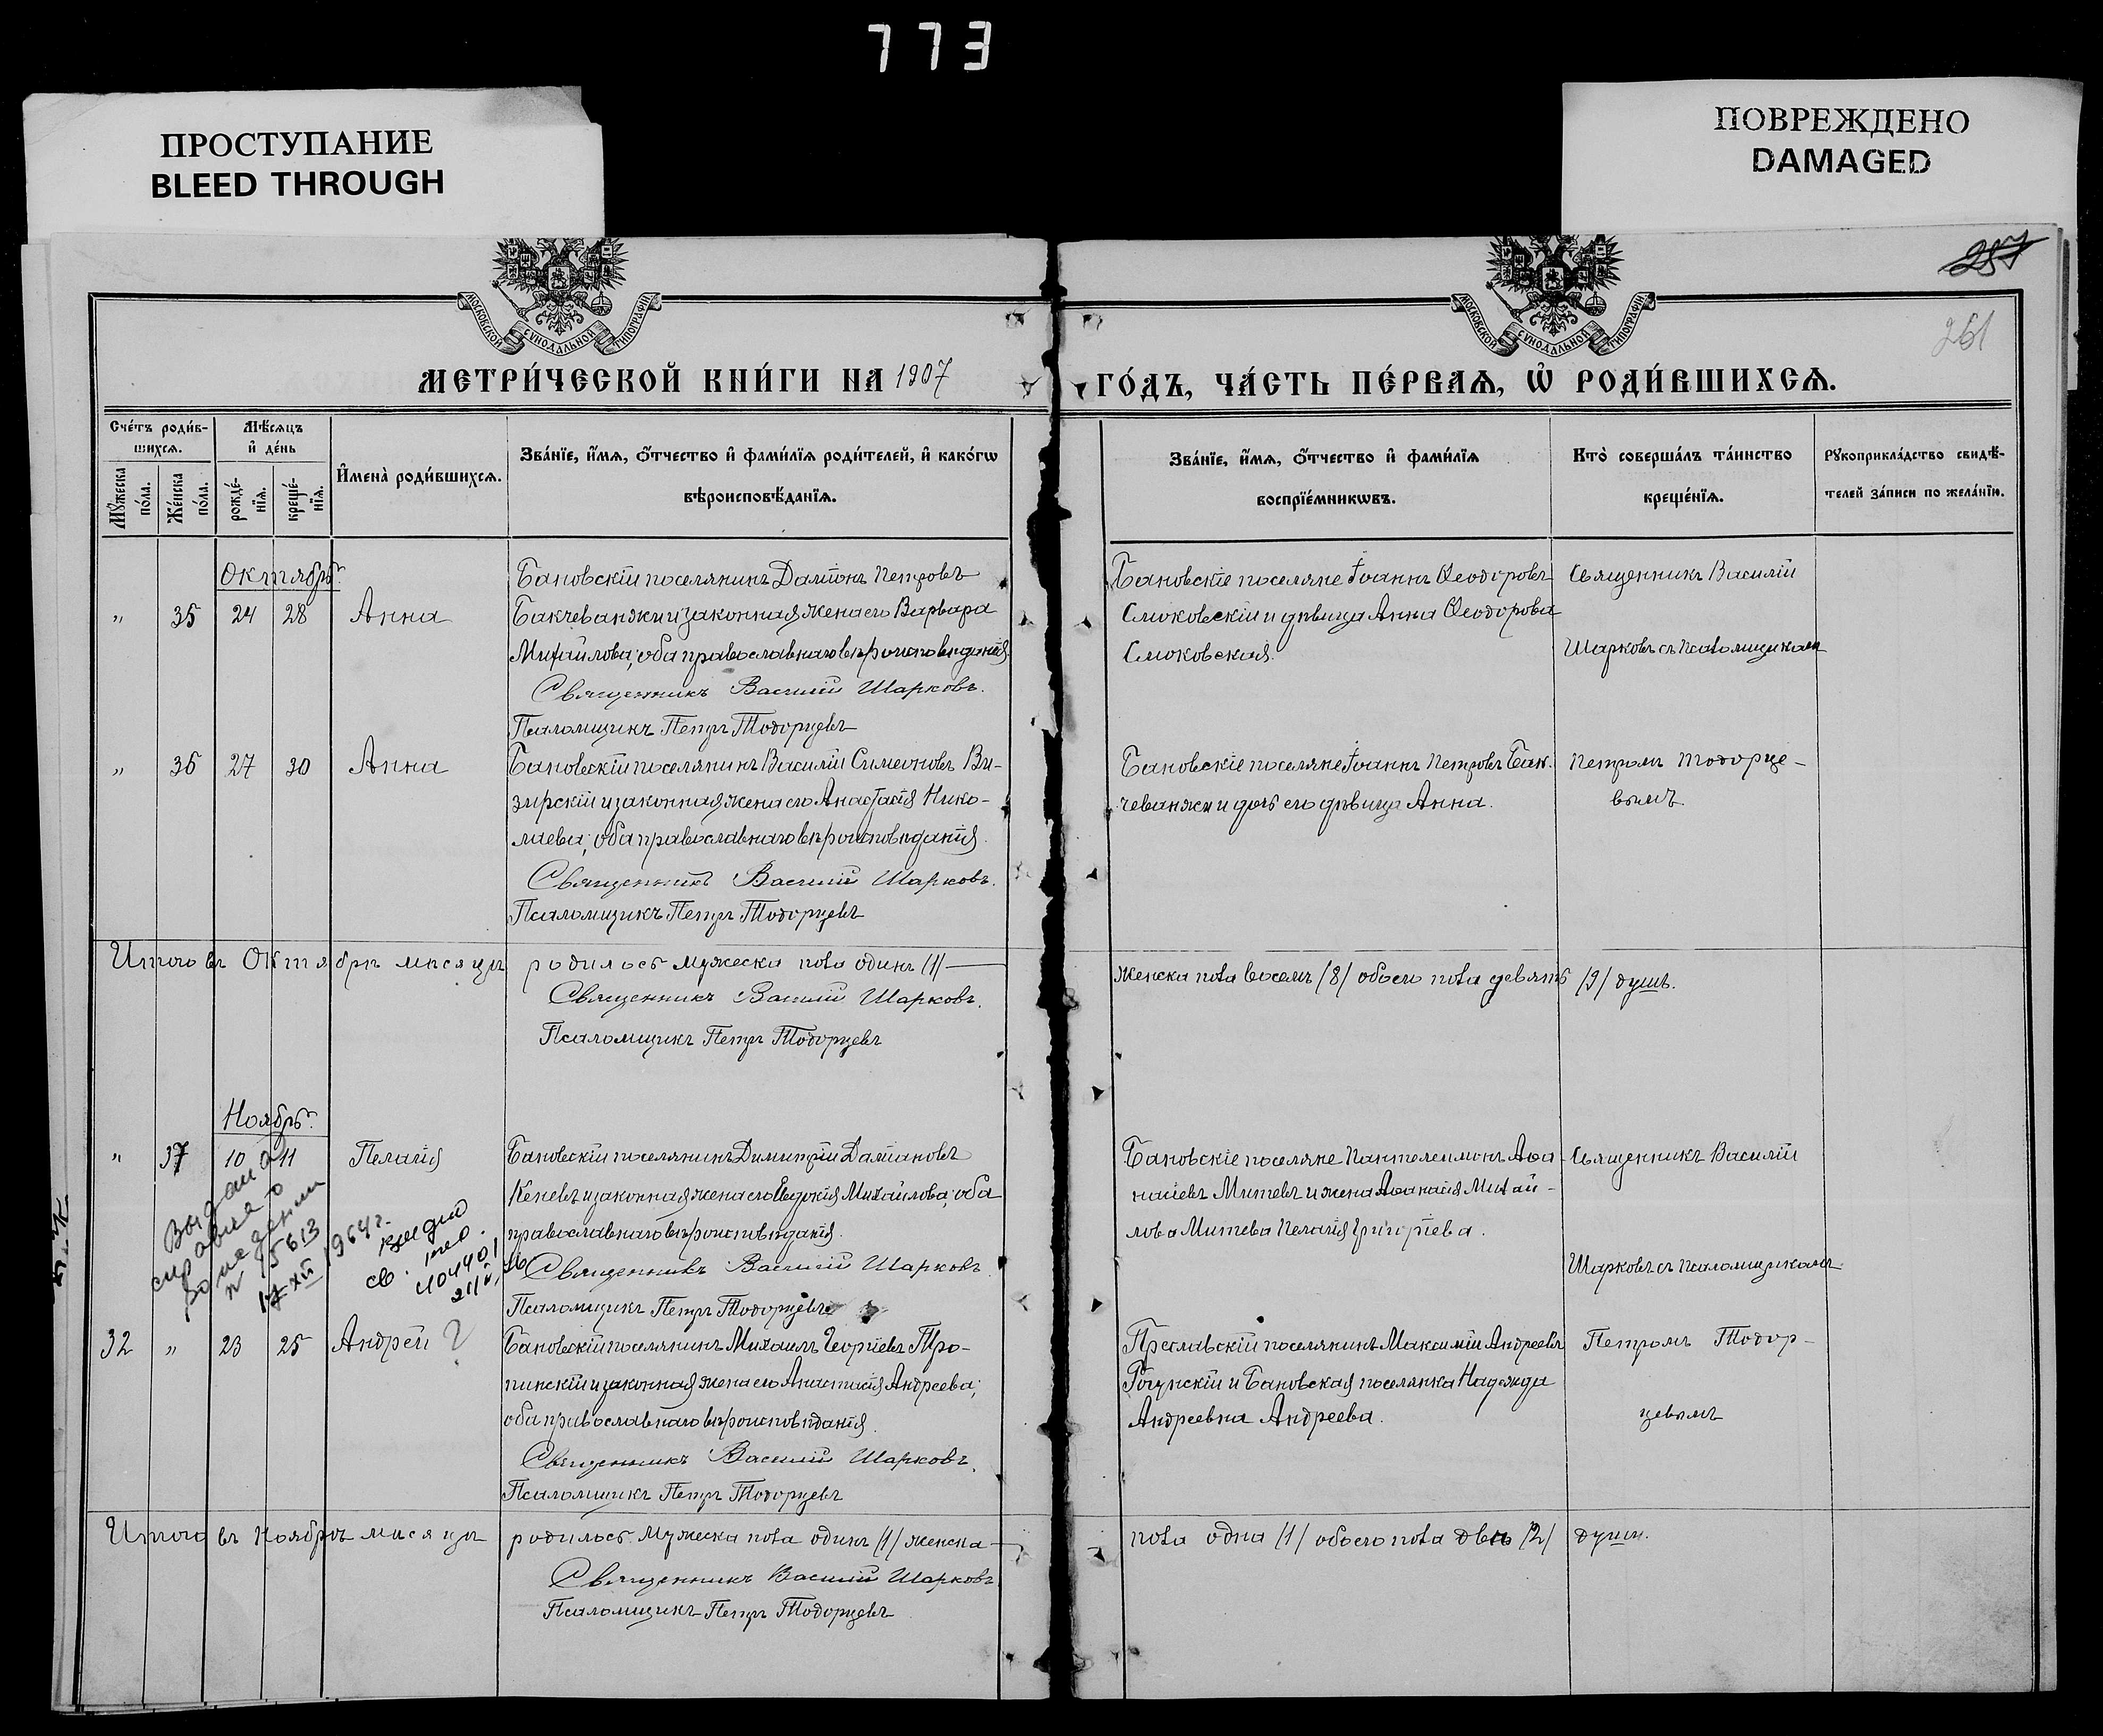 773
ПРОСТУПАНИЕ
BLEED THROUGH
ПОВРЕЖДЕНО
DAMAGED
257
261
МОСКОВСКОЙ СУНОДАЛЬНОЙ ТИПОГРАФІИ
МОСКОВСКОЙ СУНОДАЛЬНОЙ ТИПОГРАФІИ
МЕТРИ́ЧЕСКОЙ КНИ́ГИ НА 1907
ГО́ДЪ, ЧА́СТЬ ПЕ́РВАѦ, Ѡ҆ РОДИ́ВШИХСѦ.
Сче́тъ роди́в-
шихсѧ.
Мꙋ́жеска по́ла.
Же́нска по́ла.
Мѣ́сѧцъ
и҆ де́нь
рожде́-
нїѧ.
креще́-
нїѧ.
И҆мена̀ роди́вшихсѧ.
Зва́нїе, и҆́мѧ, ѻ҆́тчество и҆ фами́лїѧ роди́телей, и҆ како́гѡ
вѣроисповѣ́данїѧ.
Зва́нїе, и҆́мѧ, ѻ҆́тчество и҆ фами́лїѧ
воспрїе́мникѡвъ.
Кто̀ соверша́лъ та́инство
креще́нїѧ.
Рꙋкоприкла́дство свидѣ́-
телей за́писи по жела́нїю.
Октябрь.
" 35 24 28 Анна
Бановскій поселянинъ Даміонъ Петровъ
Бакчеванжи и законная жена его Варвара
Михаилова; оба православнаго вѣроисповѣданія.
Священникъ Василій Шарковъ.
Псаломщикъ Петръ Тодорцевъ
Бановскіе поселяне Іоаннъ Ѳеодоровъ
Смоковскій и дѣвица Анна Ѳеодорова
Смоковская.
Священникъ Василій
Шарковъ съ псаломщикомъ
" 36 27 30 Анна
Бановскій поселянинъ Василій Симеоновъ Ви-
зирскій и законная жена его Анастасія Нико-
лаева; оба православнаго вѣроисповѣданія.
Священникъ Василій Шарковъ.
Псаломщикъ Петръ Тодорцевъ
Бановскіе поселяне Іоаннъ Петровъ Бак-
чеванжи и дочь его дѣвица Анна.
Петромъ Тодорце-
вымъ.
Итого въ Октябрѣ мѣсяцѣ родилось мужеска пола одинъ /1/
женска пола восемь /8/ обоего пола девять /9/ душъ.
Священникъ Василій Шарковъ.
Псаломщикъ Петръ Тодорцевъ
Ноябрь.
" 37 10 11 Пелагія
Бановскій поселянинъ Димитрій Даміановъ
Кеневъ и законная жена его Евдокія Михаилова; оба
православнаго вѣроисповѣданія.
Священникъ Василій Шарковъ
Псаломщикъ Петръ Тодорцевъ
Бановскіе поселяне Пантелеимонъ Аѳа-
насіевъ Митевъ и жена Аѳанасія Михай-
лова Митева Пелагія Григоріева.
Священникъ Василій
Шарковъ съ псаломщикомъ
Выдана
справка о
рождении
N 15613
17 XII 1964 г.
32 " 23 25 Андрей
Бановскій поселянинъ Михаилъ Георгіевъ Тро-
пинскій и законная жена его Анастасія Андреева;
оба православнаго вѣроисповѣданія.
Священникъ Василій Шарковъ.
Псаломщикъ Петръ Тодорцевъ
Преславскій поселянинъ Максимій Андреевъ
Рогунскій и Бановская поселянка Надежда
Андреевна Андреева.
Петромъ Тодор-
цевымъ
Итого въ Ноябрѣ мѣсяцѣ родилось мужеска пола одинъ /1/ женска
пола одна /1/ обоего пола двѣ /2/ души.
Священникъ Василій Шарковъ
Псаломщикъ Петръ Тодорцевъ